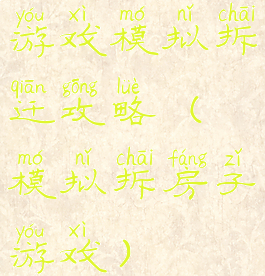 yóu xì mó nǐ chāi
游戏模拟拆
qiān gōng lüè
迁攻略（
mó nǐ chāi fáng zǐ
模拟拆房子
yóu xì
游戏）